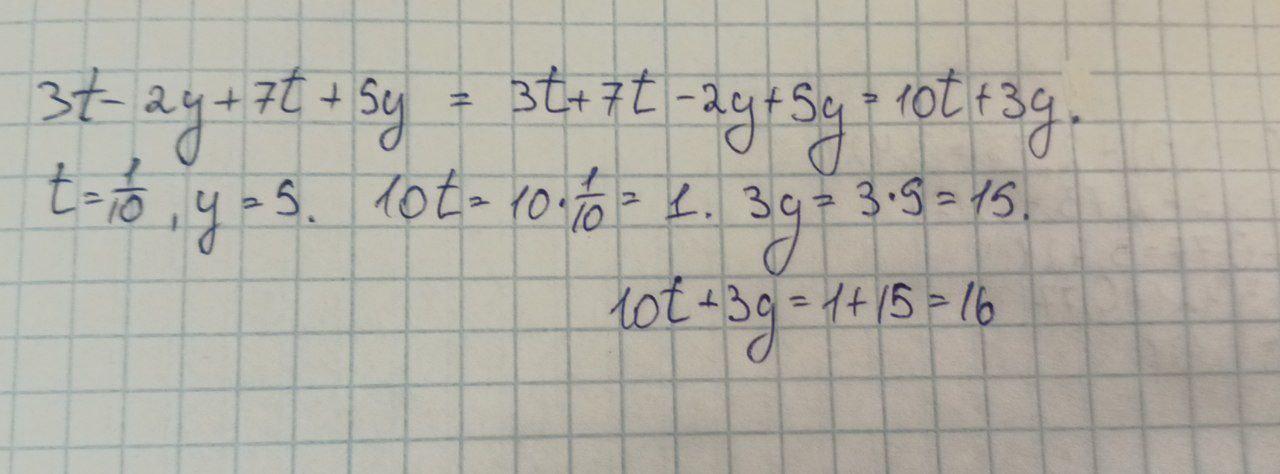 3t - 2y + 7t + 5y = 3t + 7t - 2y + 5y = 10t + 3y.
t = 1/10, y = 5. 10t = 10 · 1/10 = 1. 3y = 3 · 5 = 15.
10t + 3y = 1 + 15 = 16